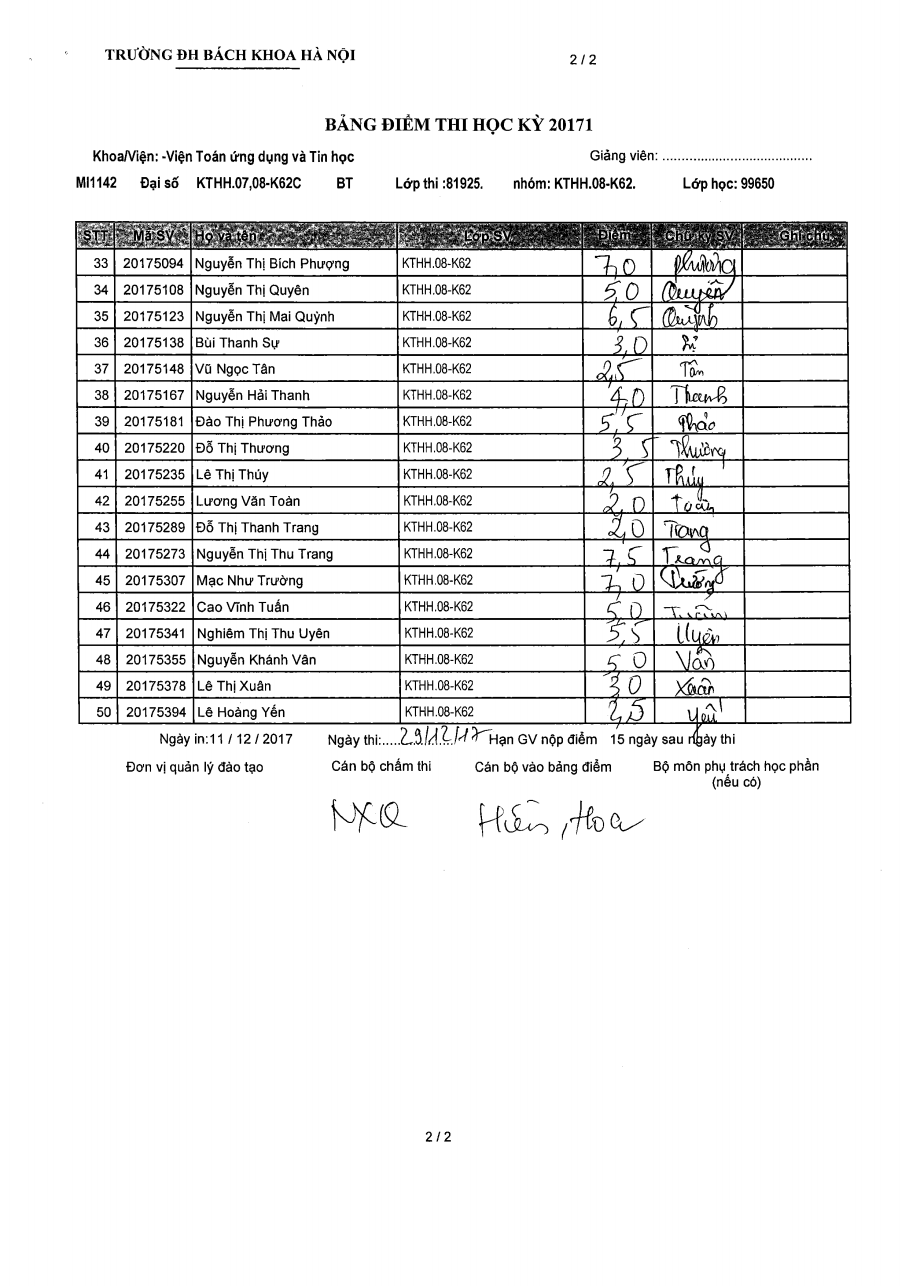 TRƯỜNG ĐH BÁCH KHOA HÀ NỘI 2 / 2
BẢNG ĐIỂM THI HỌC KỲ 20171
Khoa/Viện: -Viện Toán ứng dụng và Tin học Giảng viên: ..........................................
MI1142 Đại số KTHH.07,08-K62C BT Lớp thi :81925. nhóm: KTHH.08-K62. Lớp học: 99650
STT Mã SV Họ và tên Lớp SV Điểm Chữ ký SV Ghi chú
33 20175094 Nguyễn Thị Bích Phượng KTHH.08-K62 7,0 Phượng
34 20175108 Nguyễn Thị Quyên KTHH.08-K62 5,0 Quyên
35 20175123 Nguyễn Thị Mai Quỳnh KTHH.08-K62 6,5 Quỳnh
36 20175138 Bùi Thanh Sự KTHH.08-K62 3,0 Sự
37 20175148 Vũ Ngọc Tân KTHH.08-K62 2,5 Tân
38 20175167 Nguyễn Hải Thanh KTHH.08-K62 4,0 Thanh
39 20175181 Đào Thị Phương Thảo KTHH.08-K62 5,5 Thảo
40 20175220 Đỗ Thị Thương KTHH.08-K62 3,5 Thương
41 20175235 Lê Thị Thúy KTHH.08-K62 2,5 Thúy
42 20175255 Lương Văn Toàn KTHH.08-K62 2,0 Toàn
43 20175289 Đỗ Thị Thanh Trang KTHH.08-K62 2,0 Trang
44 20175273 Nguyễn Thị Thu Trang KTHH.08-K62 7,5 Trang
45 20175307 Mạc Như Trường KTHH.08-K62 7,0 Trường
46 20175322 Cao Vĩnh Tuấn KTHH.08-K62 5,0 Tuấn
47 20175341 Nghiêm Thị Thu Uyên KTHH.08-K62 5,5 Uyên
48 20175355 Nguyễn Khánh Vân KTHH.08-K62 5,0 Vân
49 20175378 Lê Thị Xuân KTHH.08-K62 3,0 Xuân
50 20175394 Lê Hoàng Yến KTHH.08-K62 2,5 Yến
Ngày in:11 / 12 / 2017 Ngày thi:.....29/12/17 Hạn GV nộp điểm 15 ngày sau ngày thi
Đơn vị quản lý đào tạo Cán bộ chấm thi Cán bộ vào bảng điểm Bộ môn phụ trách học phần
(nếu có)
NXQ Hiền, Hoa
2 / 2